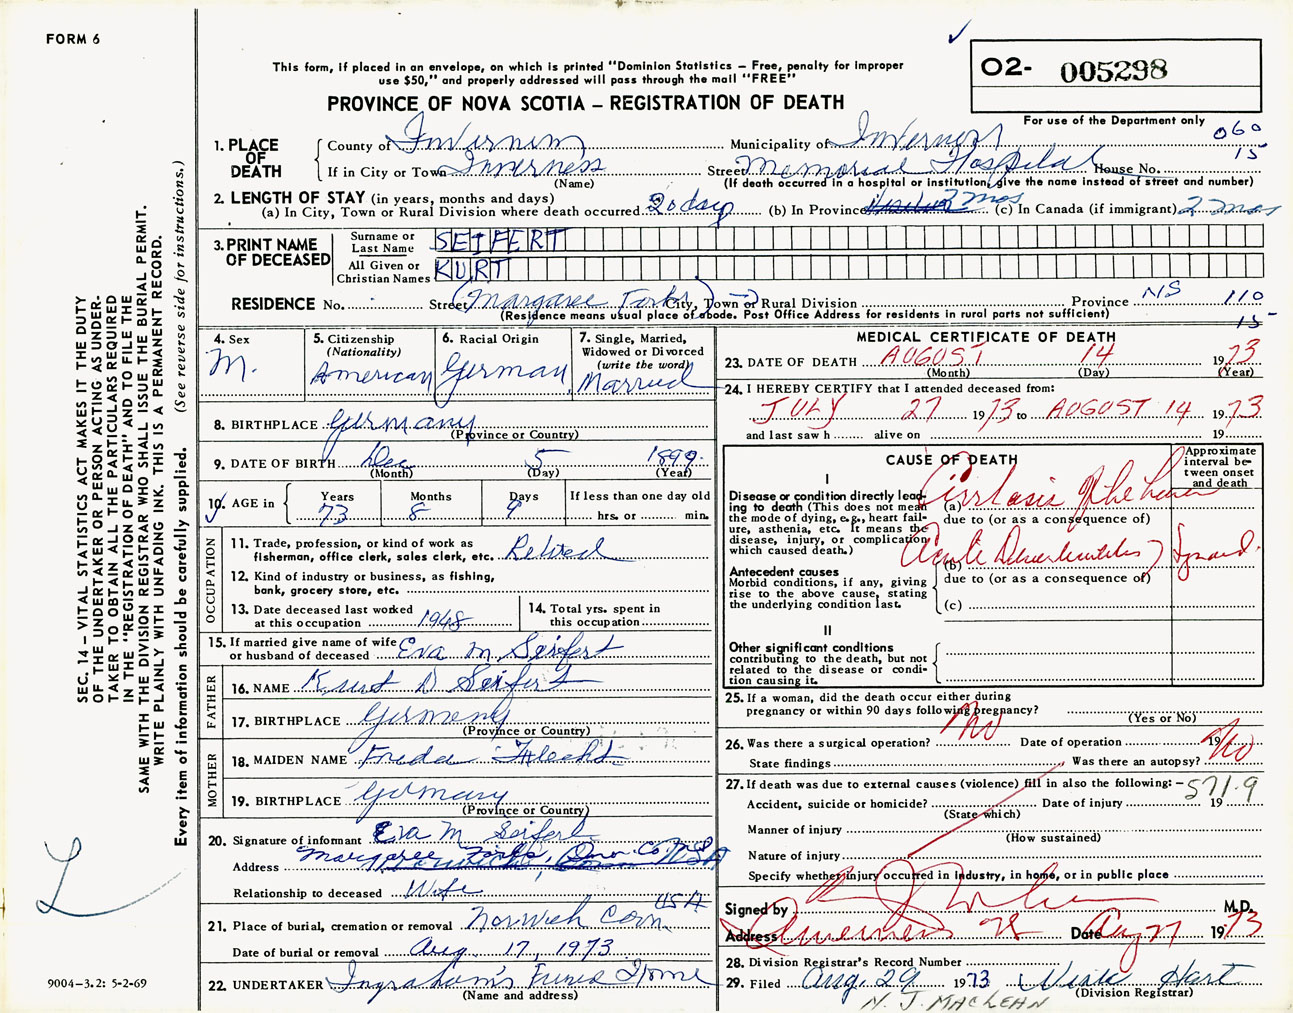 FORM 6
This form, if placed in an envelope, on which is printed "Dominion Statistics – Free, penalty for improper
use $50," and properly addressed will pass through the mail "FREE"
PROVINCE OF NOVA SCOTIA – REGISTRATION OF DEATH
O2- 005298
For use of the Department only
060
15
1. PLACE OF DEATH
County of Inverness Municipality of Inverness
If in City or Town Inverness Street Memorial Hospital House No.
(Name) (If death occurred in a hospital or institution, give the name instead of street and number)
2. LENGTH OF STAY (in years, months and days)
(a) In City, Town or Rural Division where death occurred 20 days (b) In Province 2 mos (c) In Canada (if immigrant) 2 mos
3. PRINT NAME OF DECEASED
Surname or Last Name SEIFERT
All Given or Christian Names KURT
RESIDENCE No. Street (Margaree Forks) City, Town or Rural Division Province NS 110
(Residence means usual place of abode. Post Office Address for residents in rural parts not sufficient) 15
4. Sex M.
5. Citizenship (Nationality) American
6. Racial Origin German
7. Single, Married, Widowed or Divorced (write the word) Married
8. BIRTHPLACE Germany
(Province or Country)
9. DATE OF BIRTH Dec 5 1899
(Month) (Day) (Year)
10. AGE in Years 73 Months 8 Days 9 If less than one day old hrs. or min.
OCCUPATION
11. Trade, profession, or kind of work as
fisherman, office clerk, sales clerk, etc. Retired
12. Kind of industry or business, as fishing,
bank, grocery store, etc.
13. Date deceased last worked
at this occupation 1948
14. Total yrs. spent in
this occupation
15. If married give name of wife
or husband of deceased Eva M Seifert
FATHER
16. NAME Kurt D Seifert
17. BIRTHPLACE Germany
(Province or Country)
MOTHER
18. MAIDEN NAME Freda
19. BIRTHPLACE Germany
(Province or Country)
20. Signature of informant Eva M Seifert
Address Margaree Forks, Inv. Co. N.S.
Relationship to deceased Wife
21. Place of burial, cremation or removal Norwich Conn. USA
Date of burial or removal Aug. 17, 1973
22. UNDERTAKER Ingraham's Funeral Home
(Name and address)
MEDICAL CERTIFICATE OF DEATH
23. DATE OF DEATH AUGUST 14 1973
(Month) (Day) (Year)
24. I HEREBY CERTIFY that I attended deceased from:
JULY 27 1973 to AUGUST 14 1973
and last saw h alive on 19
CAUSE OF DEATH
Approximate interval between onset and death
I
Disease or condition directly leading to death (This does not mean the mode of dying, e.g., heart failure, asthenia, etc. It means the disease, injury, or complication which caused death.)
(a) Cirrhosis of the Liver
due to (or as a consequence of)
Antecedent causes
Morbid conditions, if any, giving rise to the above cause, stating the underlying condition last.
(b) Acute
due to (or as a consequence of)
(c)
II
Other significant conditions
contributing to the death, but not related to the disease or condition causing it.
25. If a woman, did the death occur either during
pregnancy or within 90 days following pregnancy?
(Yes or No)
26. Was there a surgical operation? No Date of operation 19
State findings Was there an autopsy? No
27. If death was due to external causes (violence) fill in also the following: – 571.9
Accident, suicide or homicide? Date of injury 19
(State which)
Manner of injury
(How sustained)
Nature of injury
Specify whether injury occurred in industry, in home, or in public place
Signed by M.D.
Address Inverness NS Date Aug 27 1973
28. Division Registrar's Record Number
29. Filed Aug. 29 1973 Hart
(Division Registrar)
N. J. MACLEAN
SEC. 14 – VITAL STATISTICS ACT MAKES IT THE DUTY
OF THE UNDERTAKER OR PERSON ACTING AS UNDER-
TAKER TO OBTAIN ALL THE PARTICULARS REQUIRED
IN THE "REGISTRATION OF DEATH" AND TO FILE THE
SAME WITH THE DIVISION REGISTRAR WHO SHALL ISSUE THE BURIAL PERMIT.
WRITE PLAINLY WITH UNFADING INK. THIS IS A PERMANENT RECORD.
Every item of information should be carefully supplied. (See reverse side for instructions.)
9004-3.2: 5-2-69